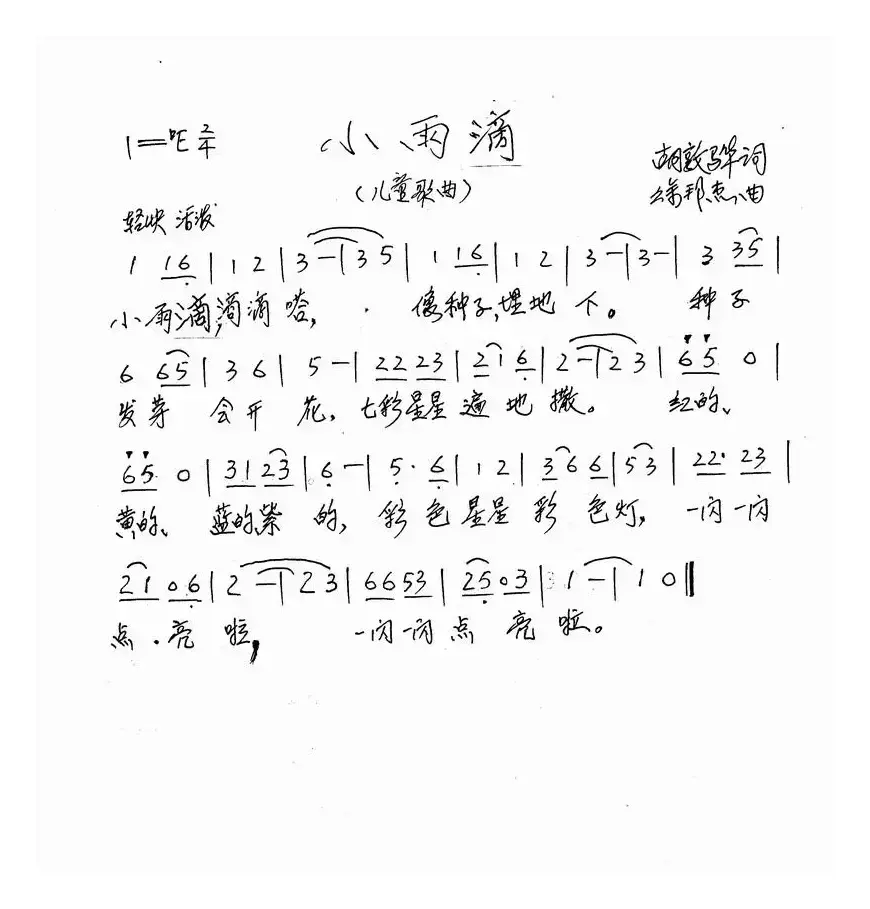 小雨滴
1=ᵇE 2/4
(儿童歌曲)
胡敦骅词
徐邦杰曲
轻快 活泼
1 16 | 1 2 | 3 - | 3 5 | 1 16 | 1 2 | 3 - | 3 - | 3 35 |
小雨滴,滴滴嗒, 像种子,埋地下。 种子
6 65 | 3 6 | 5 - | 22 23 | 21 6 | 2 - | 2 3 | 65 0 |
发芽 会开花,七彩星星遍地撒。 红的、
65 0 | 31 23 | 6 - | 5· 6 | 1 2 | 36 6 | 53 | 22· 23 |
黄的、蓝的紫的,彩色星星彩色灯,一闪一闪
21 06 | 2 - | 2 3 | 6653 | 25 03 | 1 - | 1 0 ‖
点亮啦, 一闪一闪点亮啦。